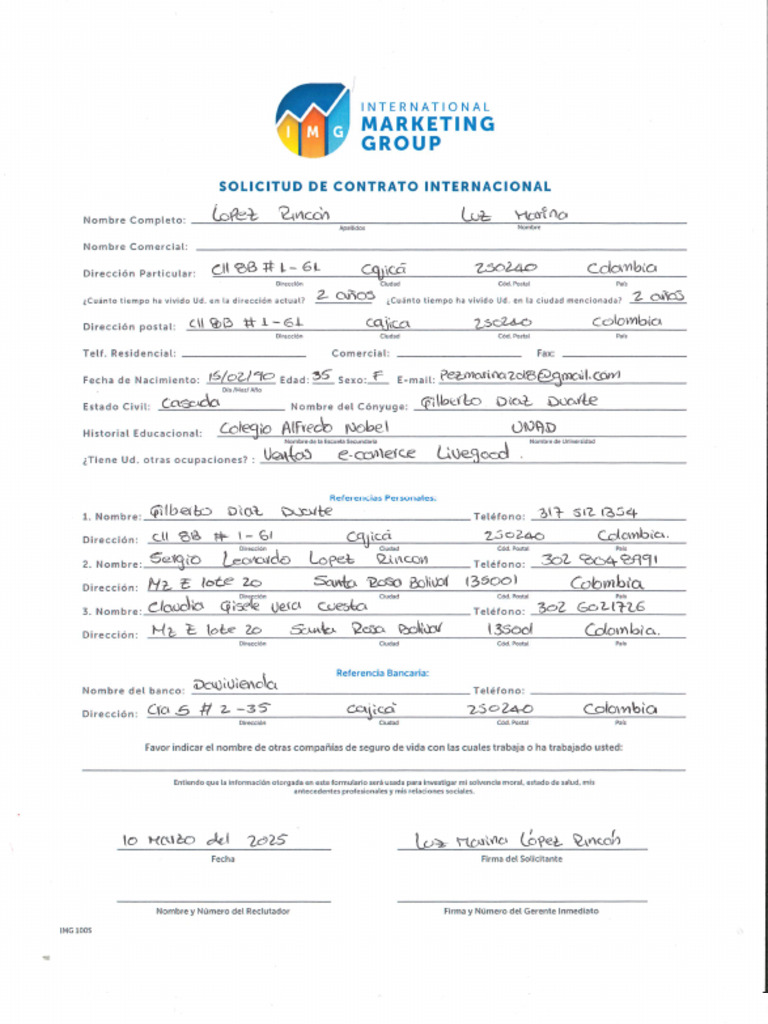 IMG
INTERNATIONAL
MARKETING
GROUP
SOLICITUD DE CONTRATO INTERNACIONAL
Nombre Completo: López Rincón Luz Marina
Apellidos Nombre
Nombre Comercial:
Dirección Particular: Cll 8B # 1-61 Cajicá 250240 Colombia
Dirección Ciudad Cód. Postal País
¿Cuánto tiempo ha vivido Ud. en la dirección actual? 2 años ¿Cuánto tiempo ha vivido Ud. en la ciudad mencionada? 2 años
Dirección postal: Cll 8B # 1-61 Cajica 250240 Colombia
Dirección Ciudad Cód. Postal País
Telf. Residencial: Comercial: Fax:
Fecha de Nacimiento: 15/02/90 Edad: 35 Sexo: F E-mail: Pezmarina2018@gmail.com
Día /Mes/ Año
Estado Civil: Casada Nombre del Cónyuge: Gilberto Diaz Duarte
Historial Educacional: Colegio Alfredo Nobel UNAD
Nombre de la Escuela Secundaria Nombre de Universidad
¿Tiene Ud. otras ocupaciones? : Ventas e-comerce Livegood.
Referencias Personales:
1. Nombre: Gilberto Diaz Duarte Teléfono: 317 5121354
Dirección: Cll 8B # 1-61 Cajicá 250240 Colombia.
Dirección Ciudad Cód. Postal País
2. Nombre: Sergio Leonardo Lopez Rincon Teléfono: 302 8048991
Dirección: Mz E lote 20 Santa Rosa Bolivar 135001 Colombia
Dirección Ciudad Cód. Postal País
3. Nombre: Claudia Gisele Vera Cuesta Teléfono: 302 6021726
Dirección: Mz E lote 20 Santa Rosa Bolivar 135001 Colombia.
Dirección Ciudad Cód. Postal País
Referencia Bancaria:
Nombre del banco: Davivienda Teléfono:
Dirección: Cra 5 # 2-35 Cajicá 250240 Colombia
Dirección Ciudad Cód. Postal País
Favor indicar el nombre de otras compañías de seguro de vida con las cuales trabaja o ha trabajado usted:
Entiendo que la información otorgada en este formulario será usada para investigar mi solvencia moral, estado de salud, mis
antecedentes profesionales y mis relaciones sociales.
10 Marzo del 2025 Luz Marina López Rincón
Fecha Firma del Solicitante
Nombre y Número del Reclutador Firma y Número del Gerente Inmediato
IMG 1005